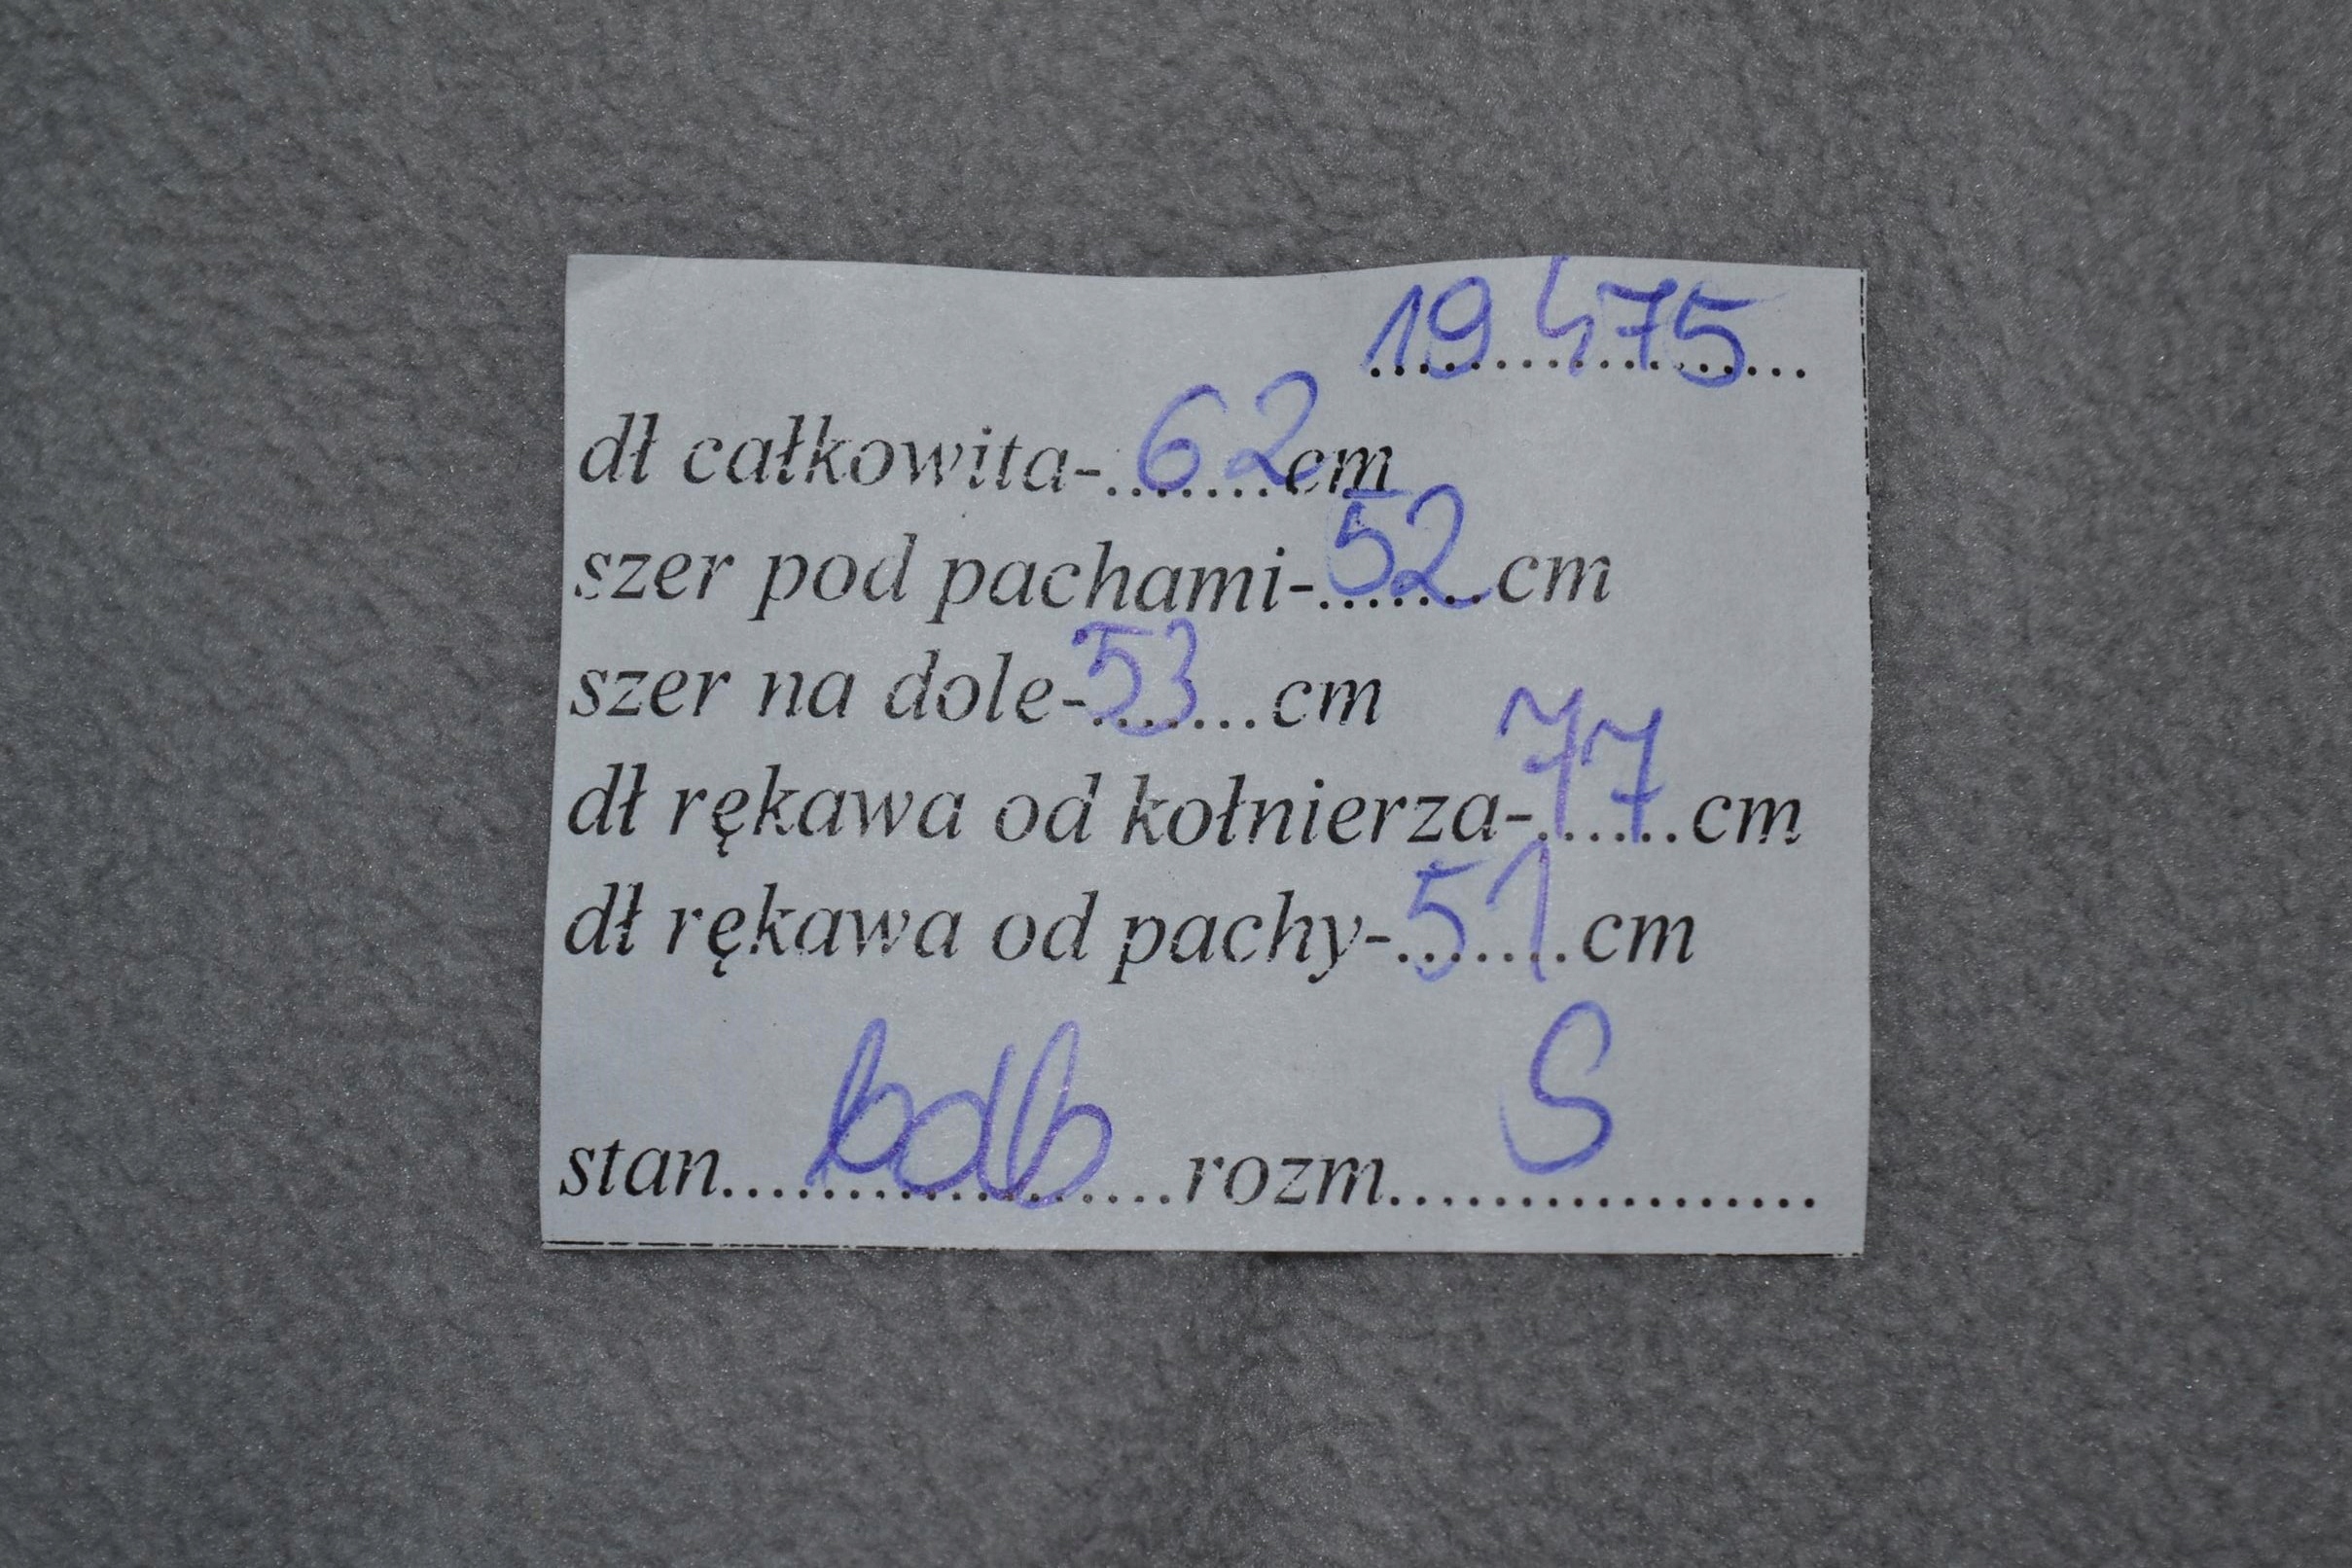 19 475
dł całkowita-........62cm
szer pod pachami-.......52cm
szer na dole-53.......cm
dł rękawa od kołnierza-77......cm
dł rękawa od pachy-51.......cm
stan...bdb...rozm...S...